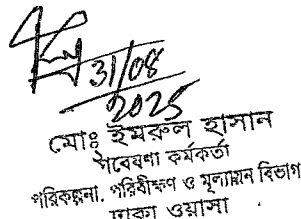 31/08
2025
মোঃ ইমরুল হাসান
গবেষণা কর্মকর্তা
পরিকল্পনা, পরিবীক্ষণ ও মূল্যায়ন বিভাগ
ঢাকা ওয়াসা